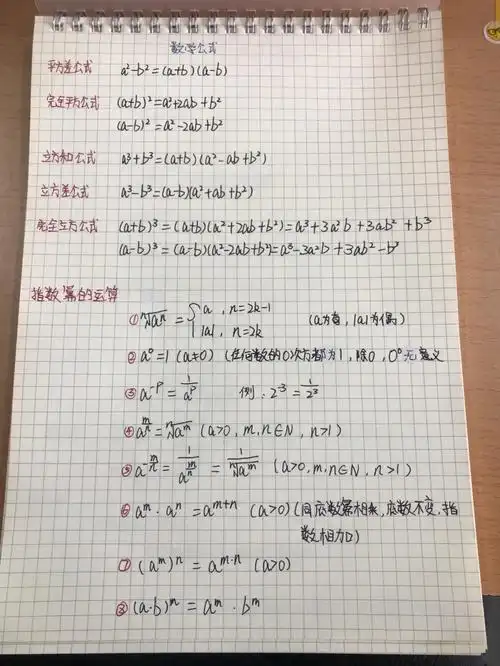 数学公式
平方差公式 a²-b²=(a+b)(a-b)
完全平方公式 (a+b)²=a²+2ab+b²
(a-b)²=a²-2ab+b²
立方和公式 a³+b³=(a+b)(a²-ab+b²)
立方差公式 a³-b³=(a-b)(a²+ab+b²)
完全立方公式 (a+b)³=(a+b)(a²+2ab+b²)=a³+3a²b+3ab²+b³
(a-b)³=(a-b)(a²-2ab+b²)=a³-3a²b+3ab²-b³
指数幂的运算
① ⁿ√aⁿ = { a, n=2k-1 (a为奇, |a|为偶)
|a|, n=2k
② a⁰=1 (a≠0) (任何数的0次方都为1, 除0, 0⁰无意义
③ a^-p = 1/a^p 例: 2^-3 = 1/2³
④ a^(m/n) = ⁿ√a^m (a>0, m,n∈N, n>1)
⑤ a^(-m/n) = 1/a^(m/n) = 1/ⁿ√a^m (a>0, m,n∈N, n>1)
⑥ a^m · a^n = a^(m+n) (a>0) (同底数幂相乘, 底数不变, 指
数相加)
⑦ (a^m)^n = a^(m·n) (a>0)
⑧ (a·b)^m = a^m · b^m